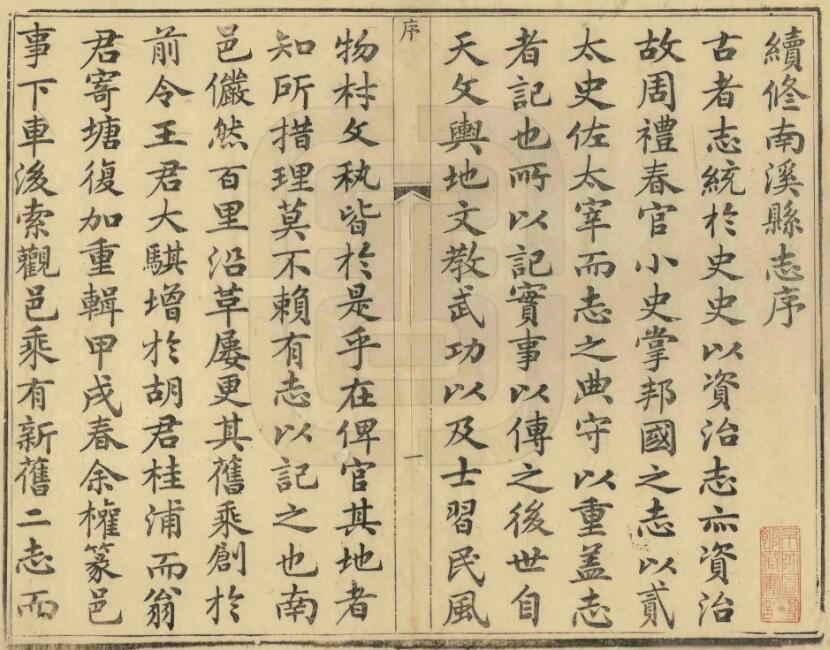 續修南溪縣志序
古者志統於史史以資治志亦資治
故周禮春官小史掌邦國之志以貳
太史佐太宰而志之典守以重盖志
者記也所以記實事以傳之後世自
天文輿地文教武功以及士習民風
序
一
物材文執皆於是乎在俾官其地者
知所措理莫不賴有志以記之也南
邑儼然百里沿革屡更其舊乘創於
前令王君大騏增於胡君桂浦而翁
君寄塘復加重輯甲戌春余權篆邑
事下車後索觀邑乘有新舊二志而